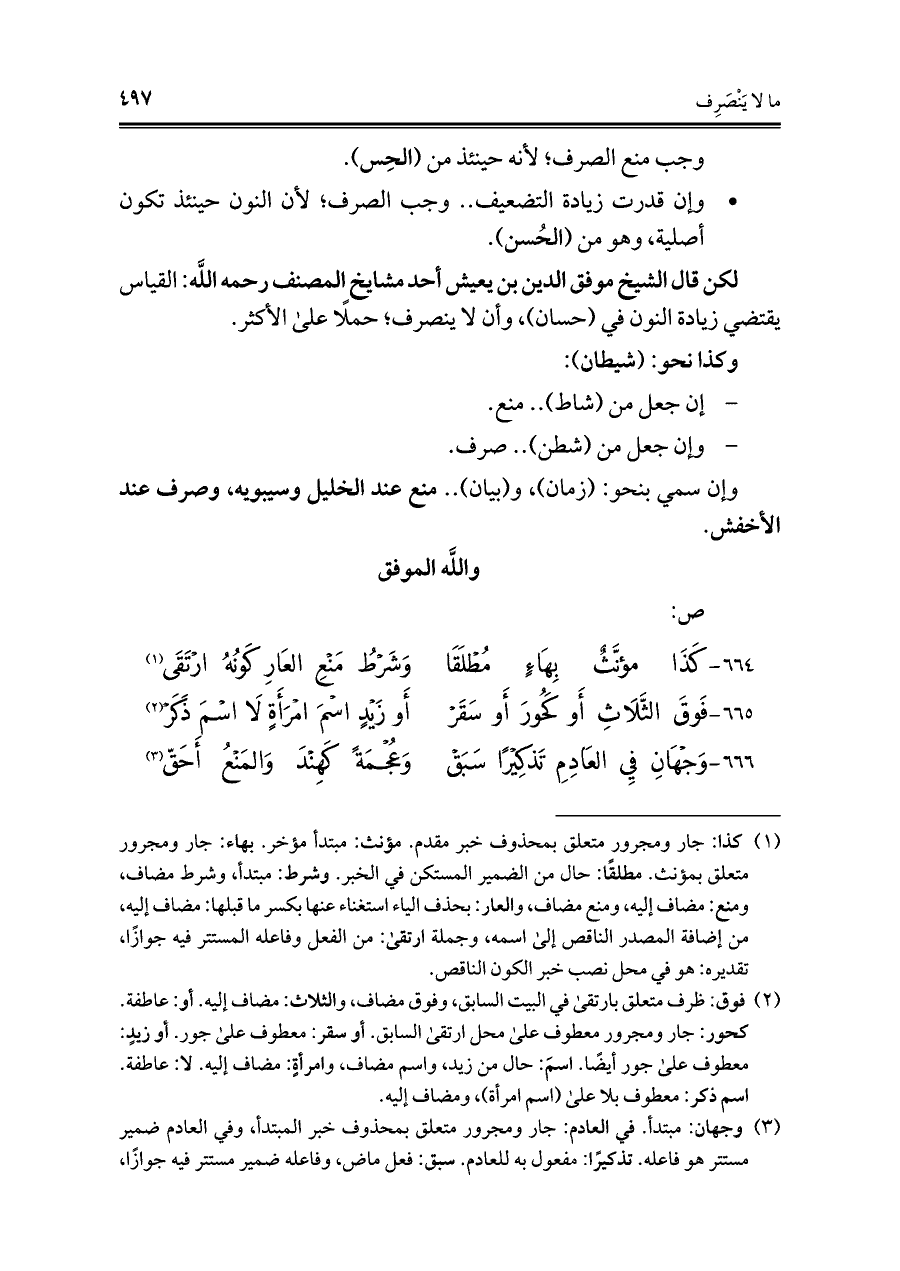 ما لا يَنْصَرِف
٤٩٧
وجب منع الصرف؛ لأنه حينئذ من (الحِس).
• وإن قدرت زيادة التضعيف.. وجب الصرف؛ لأن النون حينئذ تكون
أصلية، وهو من (الحُسن).
لكن قال الشيخ موفق الدين بن يعيش أحد مشايخ المصنف رحمه اللَّه: القياس
يقتضي زيادة النون في (حسان)، وأن لا ينصرف؛ حملًا علىٰ الأكثر.
وكذا نحو: (شيطان):
– إن جعل من (شاط).. منع.
– وإن جعل من (شطن).. صرف.
وإن سمي بنحو: (زمان)، و(بيان).. منع عند الخليل وسيبويه، وصرف عند
الأخفش.
واللَّه الموفق
ص:
٦٦٤- كَذَا مؤنَّثٌ بِهَاءٍ مُطْلَقَا وَشَرْطُ مَنْعِ العَارِ كَوْنُهُ ارْتَقَى(١)
٦٦٥- فَوقَ الثَّلَاثِ أَو كَجُورَ أَو سَقَرْ أَو زَيْدٍ اسْمَ امْرَأَةٍ لَا اسْمَ ذَكَرْ(٢)
٦٦٦- وَجْهَانِ فِي العَادِمِ تَذكِيْرًا سَبَقْ وَعُجْمَةً كَهِنْدَ وَالمَنْعُ أَحَقّ(٣)
(١) كذا: جار ومجرور متعلق بمحذوف خبر مقدم. مؤنث: مبتدأ مؤخر. بهاء: جار ومجرور
متعلق بمؤنث. مطلقًا: حال من الضمير المستكن في الخبر. وشرط: مبتدأ، وشرط مضاف،
ومنع: مضاف إليه، ومنع مضاف، والعار: بحذف الياء استغناء عنها بكسر ما قبلها: مضاف إليه،
من إضافة المصدر الناقص إلىٰ اسمه، وجملة ارتقىٰ: من الفعل وفاعله المستتر فيه جوازًا،
تقديره: هو في محل نصب خبر الكون الناقص.
(٢) فوق: ظرف متعلق بارتقىٰ في البيت السابق، وفوق مضاف، والثلاث: مضاف إليه. أو: عاطفة.
كجور: جار ومجرور معطوف علىٰ محل ارتقىٰ السابق. أو سقر: معطوف علىٰ جور. أو زيدٍ:
معطوف علىٰ جور أيضًا. اسمَ: حال من زيد، واسم مضاف، وامرأةٍ: مضاف إليه. لا: عاطفة.
اسم ذكر: معطوف بلا علىٰ (اسم امرأة)، ومضاف إليه.
(٣) وجهان: مبتدأ. في العادم: جار ومجرور متعلق بمحذوف خبر المبتدأ، وفي العادم ضمير
مستتر هو فاعله. تذكيرًا: مفعول به للعادم. سبق: فعل ماض، وفاعله ضمير مستتر فيه جوازًا،